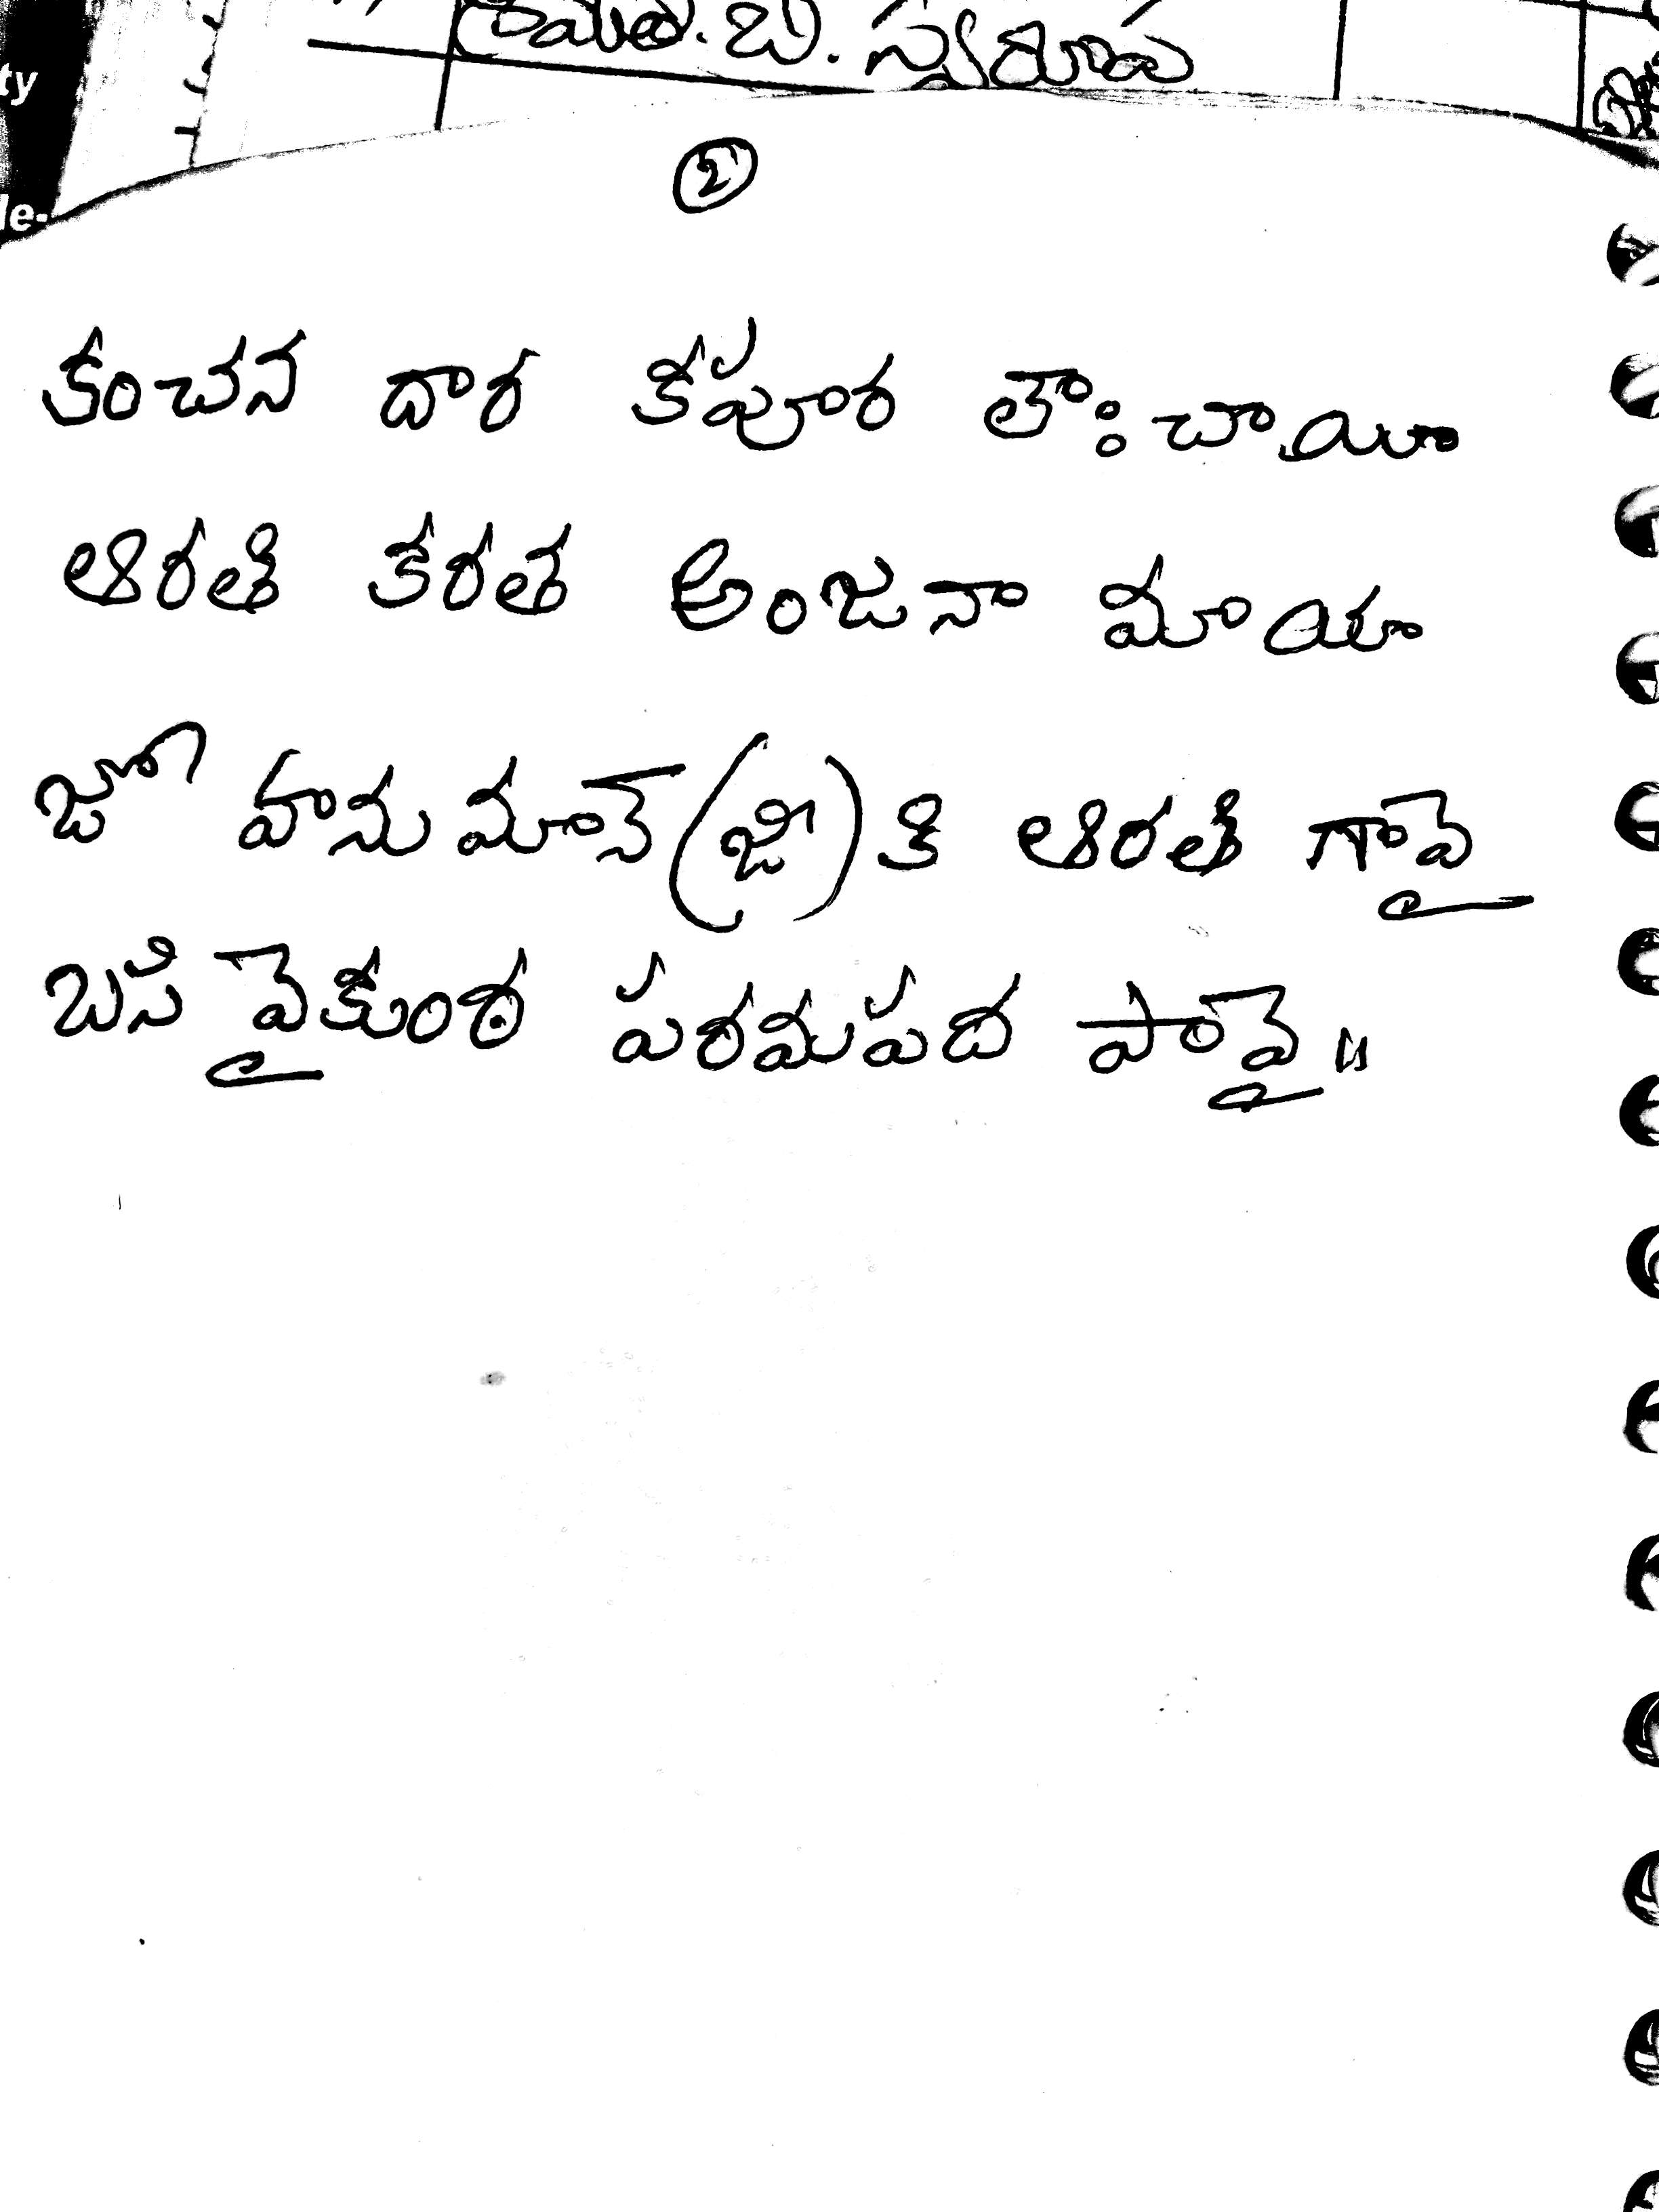 బి. స్వరూప
ty
le-
2
కంచన దార కపూర లౌ: చాయీ
ఆరతి కరత అంజనా మాయా
జో హనుమాన్ (జీ) కి ఆరతి గావై
బసి వైకుంఠ పరమపద పావై॥